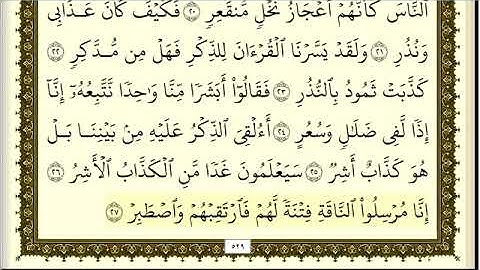 ٱلنَّاسَ كَأَنَّهُمۡ أَعۡجَازُ نَخۡلٖ مُّنقَعِرٖ ٢٠ فَكَيۡفَ كَانَ عَذَابِي
وَنُذُرِ ٢١ وَلَقَدۡ يَسَّرۡنَا ٱلۡقُرۡءَانَ لِلذِّكۡرِ فَهَلۡ مِن مُّدَّكِرٖ ٢٢
كَذَّبَتۡ ثَمُودُ بِٱلنُّذُرِ ٢٣ فَقَالُوٓاْ أَبَشَرٗا مِّنَّا وَٰحِدٗا نَّتَّبِعُهُۥٓ إِنَّآ
إِذٗا لَّفِي ضَلَٰلٖ وَسُعُرٍ ٢٤ أَءُلۡقِيَ ٱلذِّكۡرُ عَلَيۡهِ مِنۢ بَيۡنِنَا بَلۡ
هُوَ كَذَّابٌ أَشِرٞ ٢٥ سَيَعۡلَمُونَ غَدٗا مَّنِ ٱلۡكَذَّابُ ٱلۡأَشِرُ ٢٦
إِنَّا مُرۡسِلُواْ ٱلنَّاقَةِ فِتۡنَةٗ لَّهُمۡ فَٱرۡتَقِبۡهُمۡ وَٱصۡطَبِرۡ ٢٧
٥٢٩